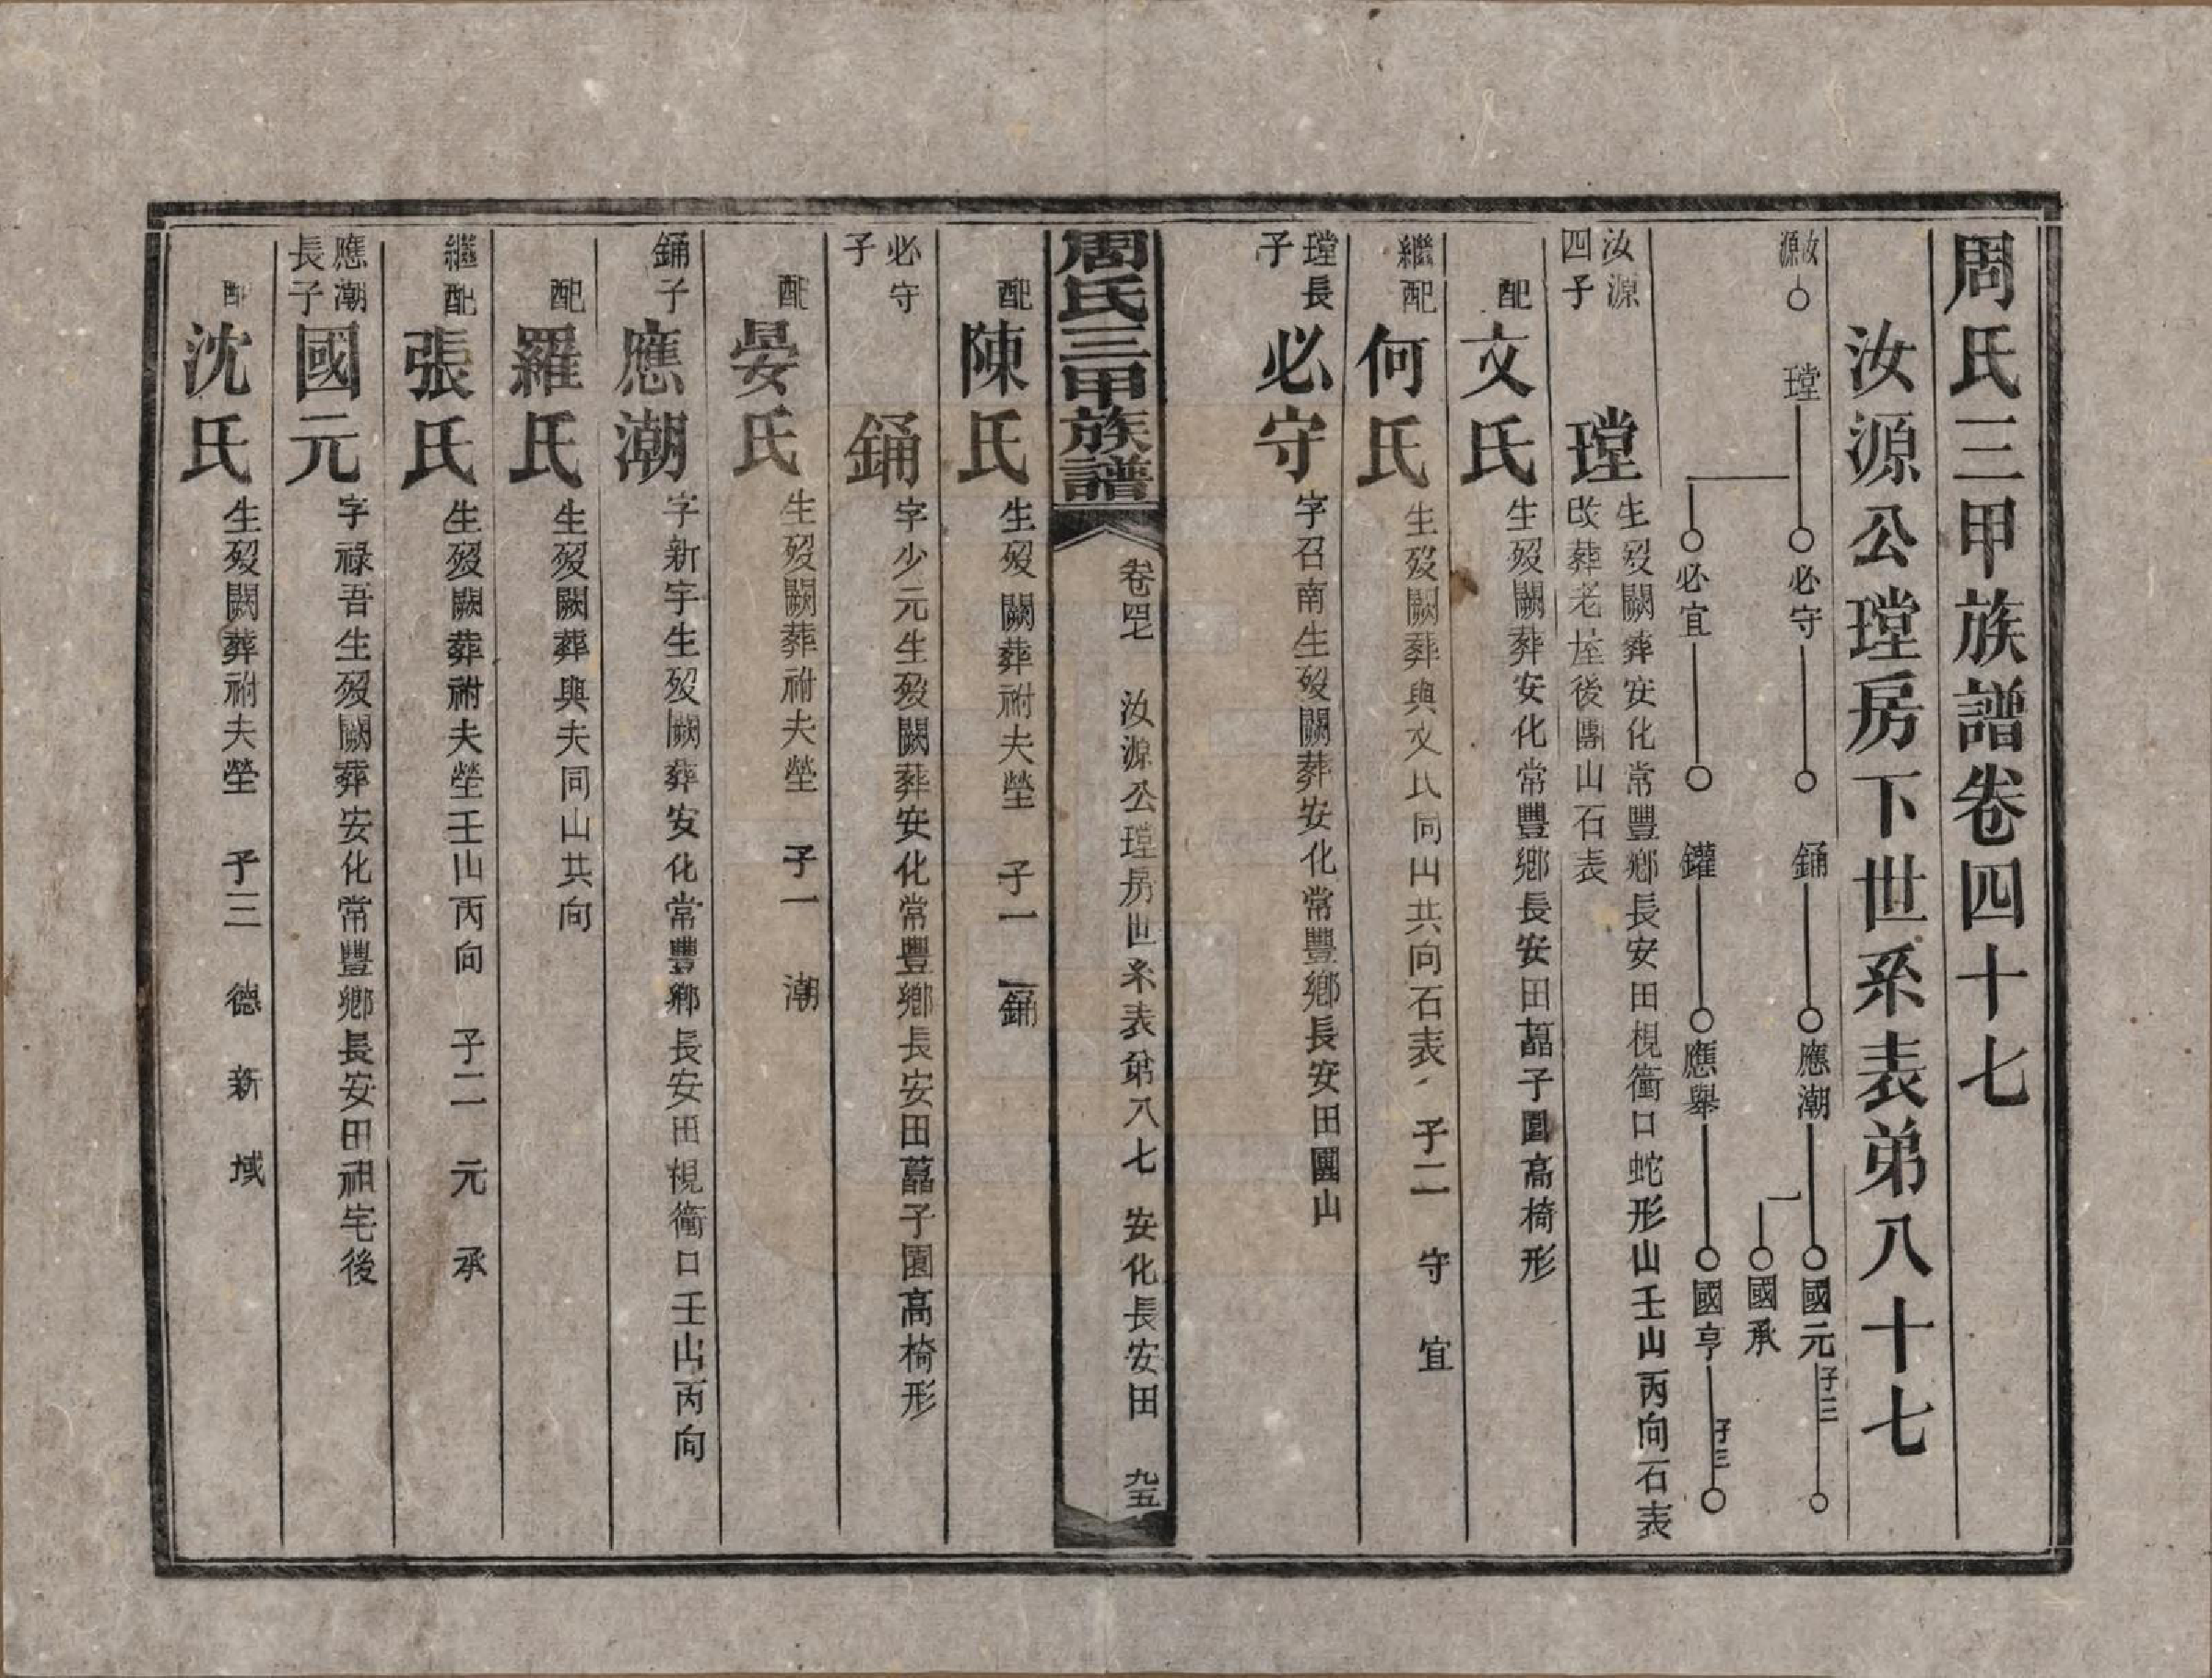 周氏三甲族譜卷四十七
汝源公瑝房下世系表弟八十七
汝源 瑝 必守 鋪 應潮 國元 子三
國承
必宜 鑵 應舉 國亨 子三
汝源四子 瑝 生歿闕葬安化常豐鄉長安田梘衝口蛇形山壬山丙向石表
改葬老屋後團山石表
配 文氏 生歿闕葬安化常豐鄉長安田藠子園高椅形
繼配 何氏 生歿闕葬與文氏同山共向石表 子二 守 宜
瑝長子 必守 字召南生歿闕葬安化常豐鄉長安田團山
周氏三甲族譜 卷四七 汝源公瑝房世系表弟八七 安化長安田 九五
配 陳氏 生歿闕葬祔夫塋 子一 鋪
必守子 鋪 字少元生歿闕葬安化常豐鄉長安田藠子園高椅形
配 晏氏 生歿闕葬祔夫塋 子一 潮
鋪子 應潮 字新宇生歿闕葬安化常豐鄉長安田梘衝口壬山丙向
配 羅氏 生歿闕葬與夫同山共向
繼配 張氏 生歿闕葬祔夫塋壬山丙向 子二 元 承
應潮長子 國元 字祿吾生歿闕葬安化常豐鄉長安田祖宅後
配 沈氏 生歿闕葬祔夫塋 子三 德 新 域